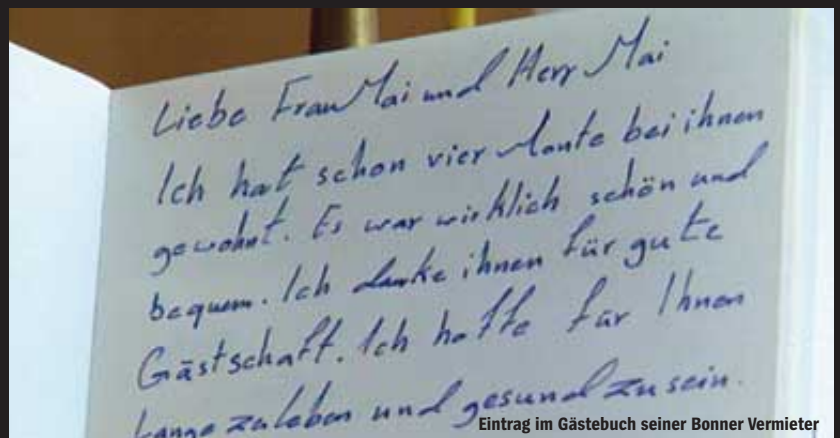 Liebe Frau Mai und Herr Mai
Ich hat schon vier Monte bei ihnen
gewohnt. Es war wirklich schön und
bequem. Ich danke ihnen für gute
Gästschaft. Ich hoffe für Ihnen
Lange zu leben und gesund zu sein.
Eintrag im Gästebuch seiner Bonner Vermieter